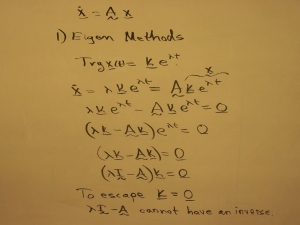 ẋ = A x
1) Eigen Methods
Try x(t) = k e^λt
x
ẋ = λ k e^λt = A k e^λt
λ k e^λt − A k e^λt = 0
(λk − Ak) e^λt = 0
(λk − Ak) = 0
(λI − A)k = 0
To escape k = 0
λI − A cannot have an inverse.